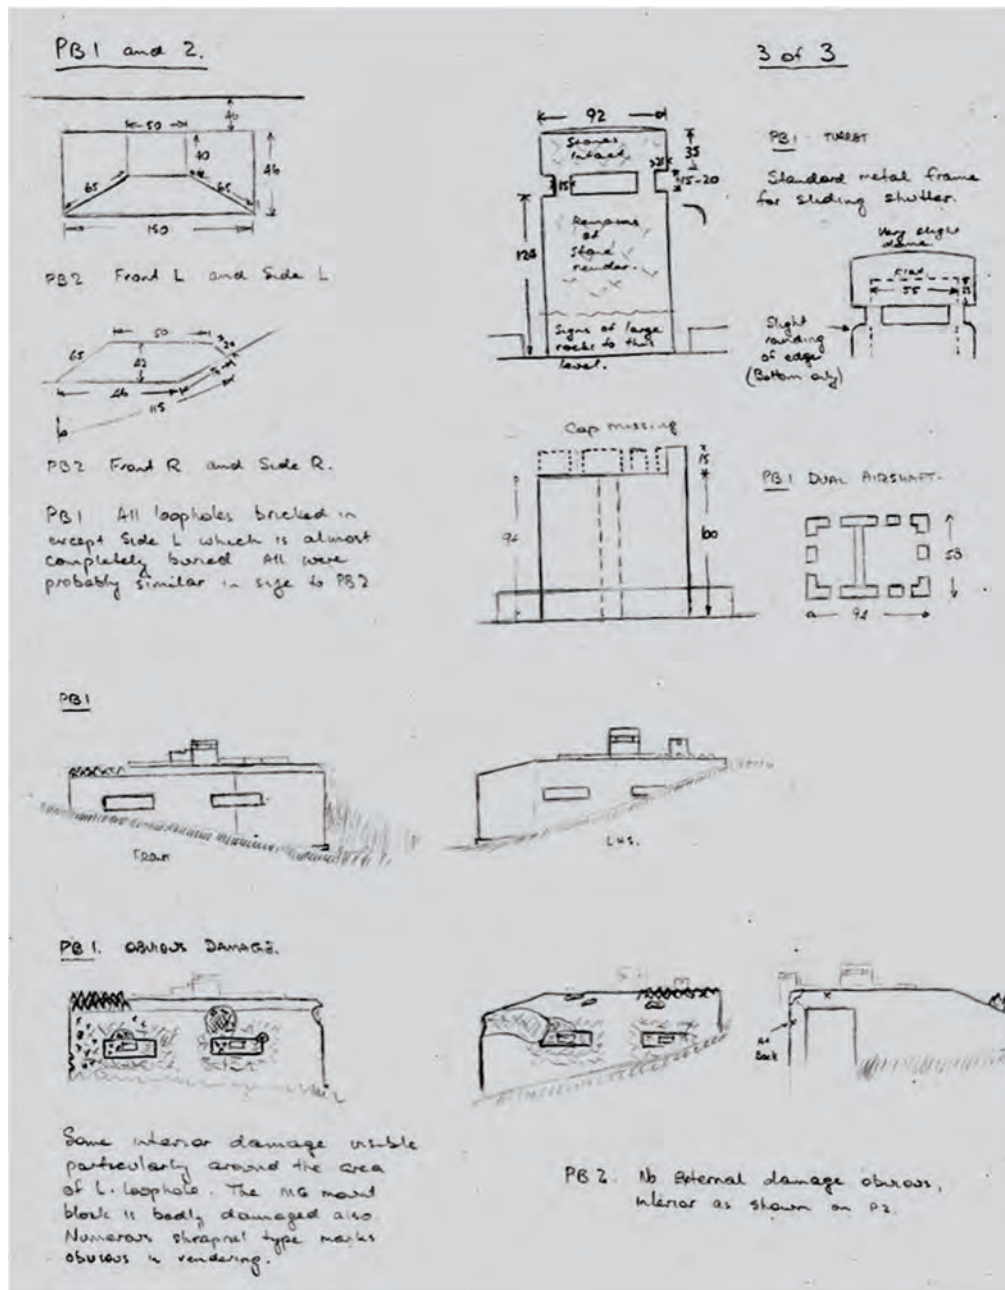 PB1 and 2.
3 of 3
50
40
40
46
65
65
150
PB2 Front L and Side L
50
65
42
20
46
115
PB2 Front R and Side R.
PB1 All loopholes bricked in
except Side L which is almost
completely buried All were
probably similar in size to PB2
92
Stones
Intact
35
15
15-20
Remains
of
Stone
render.
Signs of large
rocks to this
level.
PB1 - TURRET
Standard metal frame
for sliding shutter.
Very slight
dome
Flat
55
Slight
rounding
of edge
(Bottom only)
Cap missing
15
94
100
PB1 DUAL AIRSHAFT.
58
94
PB1
Front
LHS.
PB1. OBVIOUS DAMAGE.
At
Back
Some interior damage visible
particularly around the area
of L. loophole. The MG mount
block is badly damaged also.
Numerous shrapnel type marks
obvious in rendering.
PB2. No External damage obvious,
interior as shown on P2.